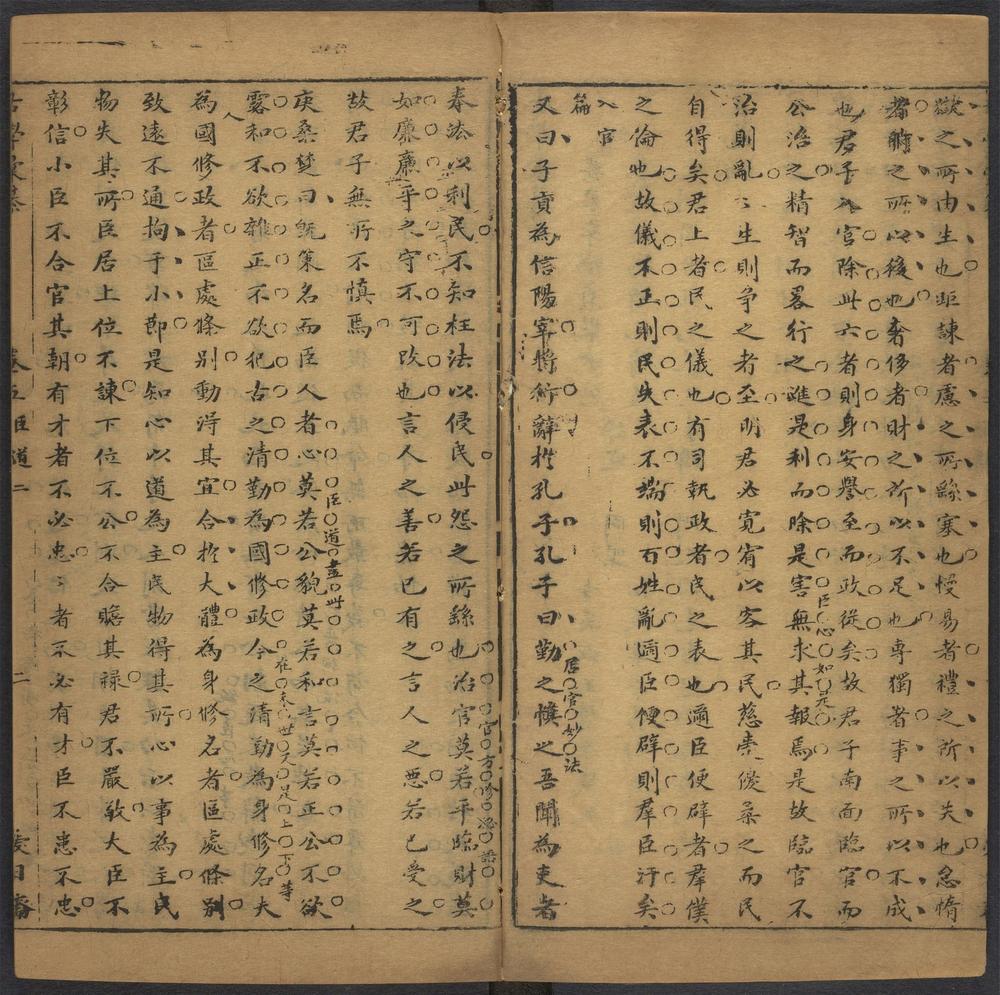 欲之所由生也距諫者慮之所繇塞也慢易者禮之所以失也怠惰
者時之所以後也奢侈者財之所以不足也專獨者事之所以不成
也君子入官除此六者則身安譽至而政從矣故君子南面臨官而
公治之精智而畧行之進是利而除是害無求其報焉是故臨官不
臣心如是
治則亂亂生則爭之者至明君必寬宥以容其民慈崇優柔之而民
自得矣君上者民之儀也有司執政者民之表也邇臣便辟者羣僕
之倫也故儀不正則民失表不端則百姓亂邇臣便辟則羣臣汙矣
入官
篇
又曰子貢為信陽宰將行辭於孔子孔子曰勤之慎之吾聞為吏者
居官妙法
奉法以利民不知枉法以侵民此怨之所繇也治官莫若平臨財莫
官方
如廉廉平之守不可改也言人之善若已有之言人之惡若已受之
故君子無所不慎焉
庚桑楚曰旣策名而臣人者心莫若公貌莫若和言莫若正公不欲
臣道盡此
露和不欲雜正不欲犯古之清勤為國修政今之清勤為身修名夫
在末世又是上下等
為國修政者區處條别動得其宜合於大體為身修名者區處條别
人
致遠不通拘于小節是知心以道為主民物得其所心以事為主民
物失其所臣居上位不諫下位不公不合贍其祿君不嚴敬大臣不
彰信小臣不合官其朝有才者不必忠忠者不必有才臣不患不忠
卷五臣道二
二